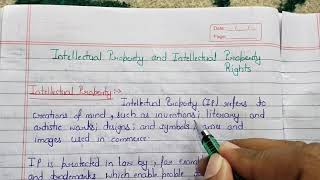 Date
Page
Intellectual Property and Intellectual Property
Rights
Intellectual Property :-
Intellectual Property (IP) refers to
creations of mind, such as inventions; literary and
artistic works; designs; and symbols, names and
images used in commerce.
IP is protected in law by, for example
and trademarks which enable people